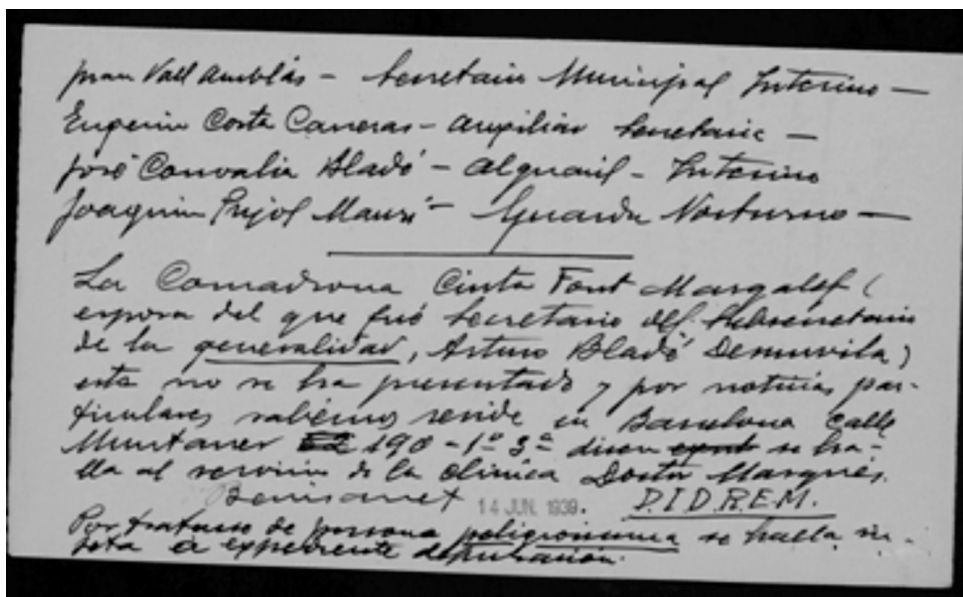 Juan Vall Amblás - Secretario Municipal Interino -
Eugenio Costa Caneras - Auxiliar Secretaric -
José Convalia Bladé - Alguacil - Interino
Joaquin Pujol Mauri - Guarda Nocturno -
La Comadrona Cinta Font Margalef (
esposa del que fué Secretario del Subsecretario
de la generalidad, Arturo Bladé Desumvila)
esta no se ha presentado y por noticias par-
ticulares sabemos reside en Barcelona Calle
Muntaner 190 - 1º 3ª dicen se ha-
lla al servicio de la clinica Doctor Marqués.
Benisanet 14 JUN. 1939. D.I.D.R.E.M.
Por tratarse de persona peligrosisima se halla su-
jeta a expediente depuración.